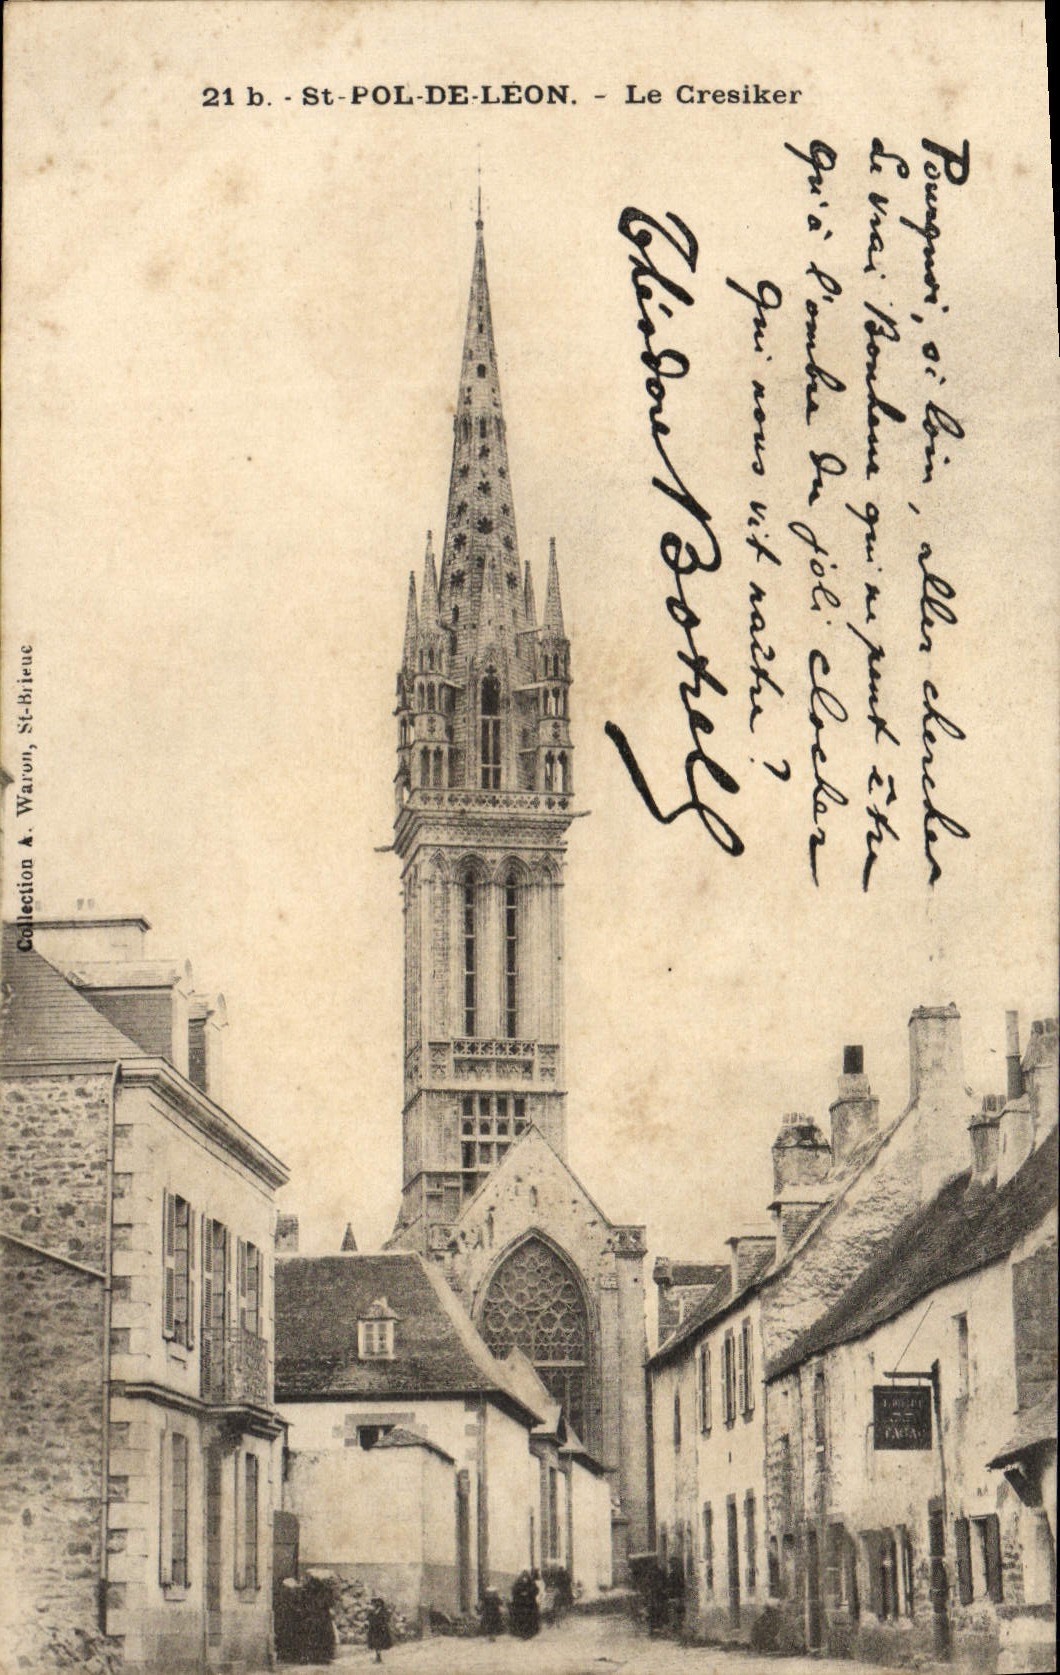 21 b. - St-POL-DE-LÉON. - Le Cresiker
Pourquoi, si loin, aller chercher
Le vrai Bonheur qui ne peut être
Qu'à l'ombre du joli clocher
Qui nous vit naître ?
Théodore Botrel
Collection A. Waron, St-Brieuc